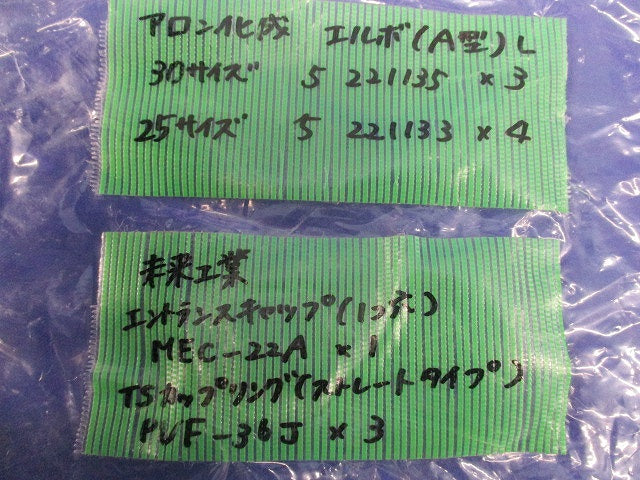 アロン化成 エルボ(A型)L
30サイズ 5 221135 ×3
25サイズ 5 221133 ×4
未来工業
エントランスキャップ(1ツ穴)
MEC-22A ×1
TSカップリング(ストレートタイプ)
PVF-36J ×3